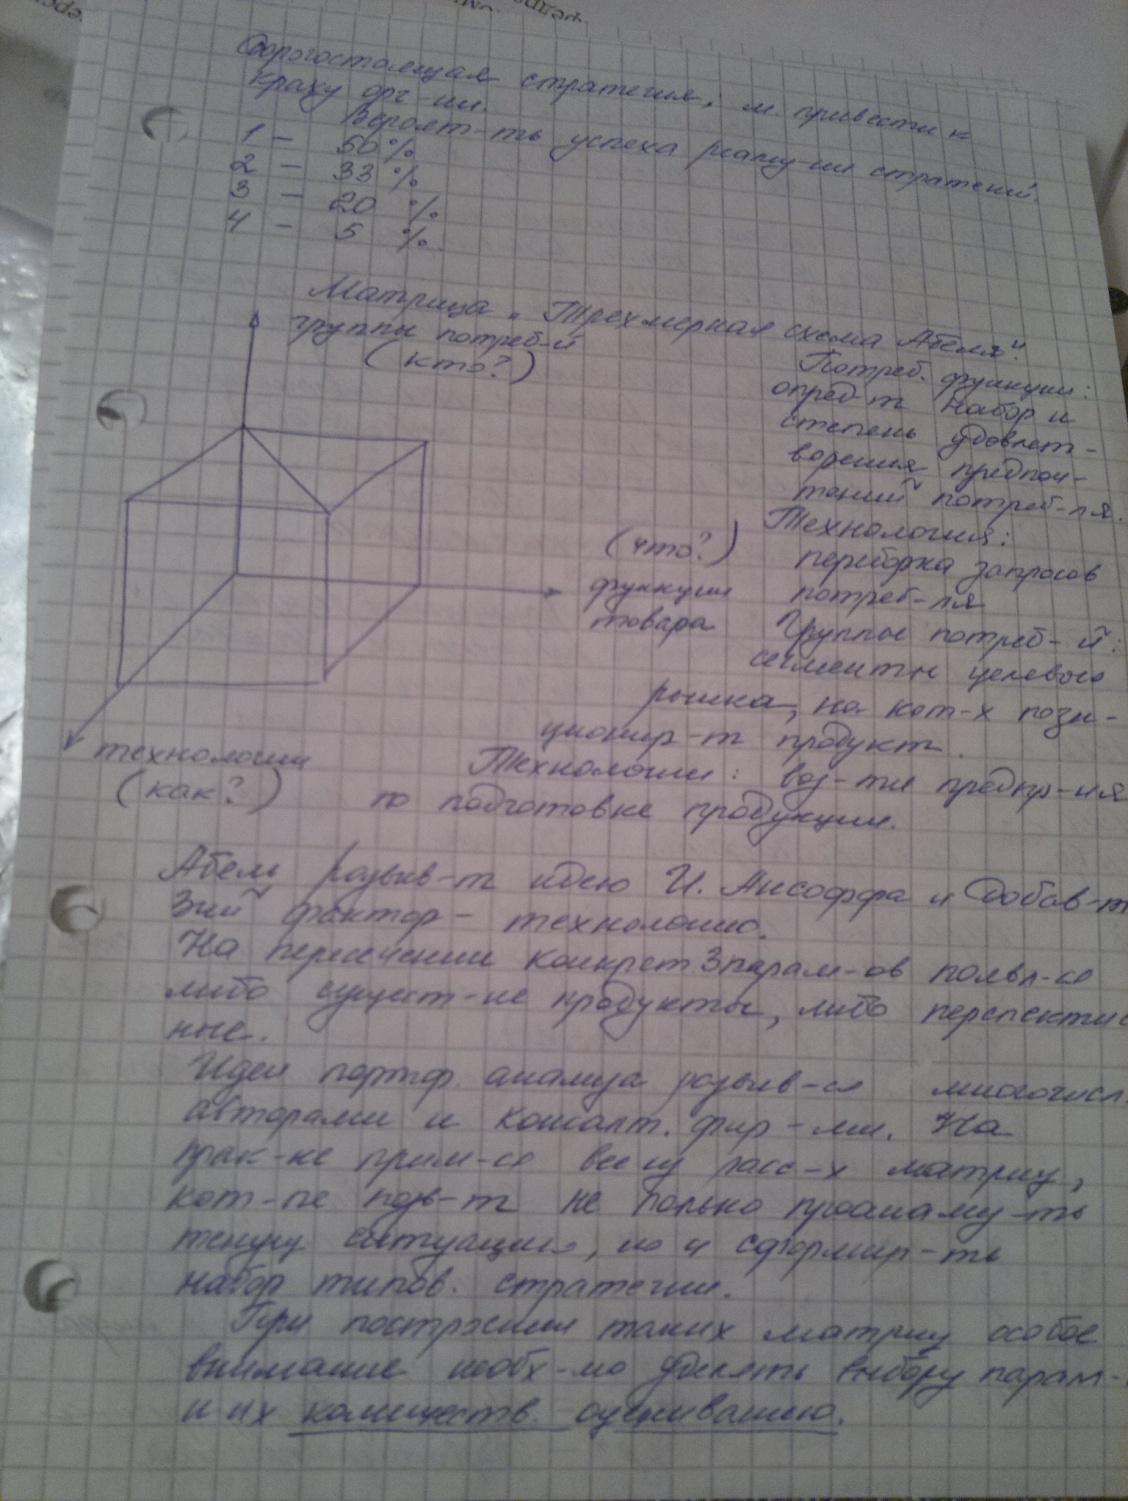 Дорогостоящая стратегия, м. привести к
краху орг-ии.
Вероят-ть успеха реализ-ии стратегий.
1 - 50 %
2 - 33 %
3 - 20 %
4 - 5 %
Матрица „Трехмерная схема Абеля“.
группы потреб-й
(кто?)
Потреб. функции:
опред-т набор и
степень удовлет-
ворения предпоч-
тений потреб-ля.
Технология:
запросов
потреб-ля
(что?)
функции
товара
Группы потреб-й:
сегменты целевого
рынка, на кот-х пози-
ционир-т продукт.
технологии
(как?)
Технологии: воз-ти предпр-ия
по подготовке продукции.
Абель развив-т идею И. Ансоффа и добав-т
3ий фактор - технологию.
На пересечении конкрет 3 парам-ов появл-ся
либо сущест-ие продукты, либо перспектив
ные.
Идеи портф. анализа развив-ся многочисл.
авторами и консалт. фир-ми. На
прак-ке прим-ся все из расс-х матриц,
кот-ые позв-т не только проанализ-ть
текущ ситуацию, но и сформир-ть
набор типов. стратегии.
При построении таких матриц особое
внимание необх-мо уделять выбору парам-
и их количеств. оцениванию.